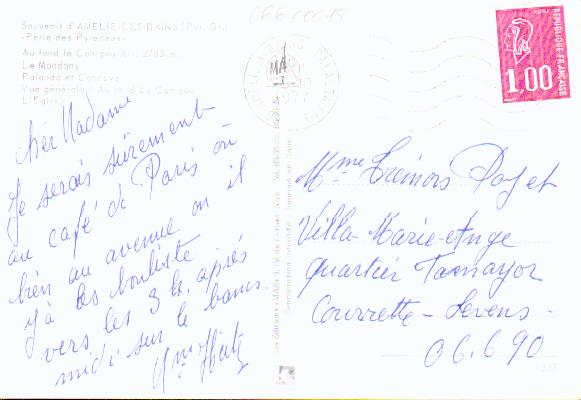 Souvenir d'AMELIE-LES-BAINS (Pyr. Or.)
"Perle des Pyrénées"
Au fond le Canigou Alt. 2785 m.
Le Mondony
Palanda et Can
Vue générale. Au fond Le Canigou
L'Eglise
Cher Madame
Je serais sûrement
au café de Paris ou
bien au avenue ou il
y à les bouliste
vers les 3 h. après
midi sur le bancs.
Mme
POSTES
REPUBLIQUE FRANÇAISE
1,00
Mme Poyet
Villa Marie-Ange
Quartier Tamayor
Courrette-Levens-
06.690